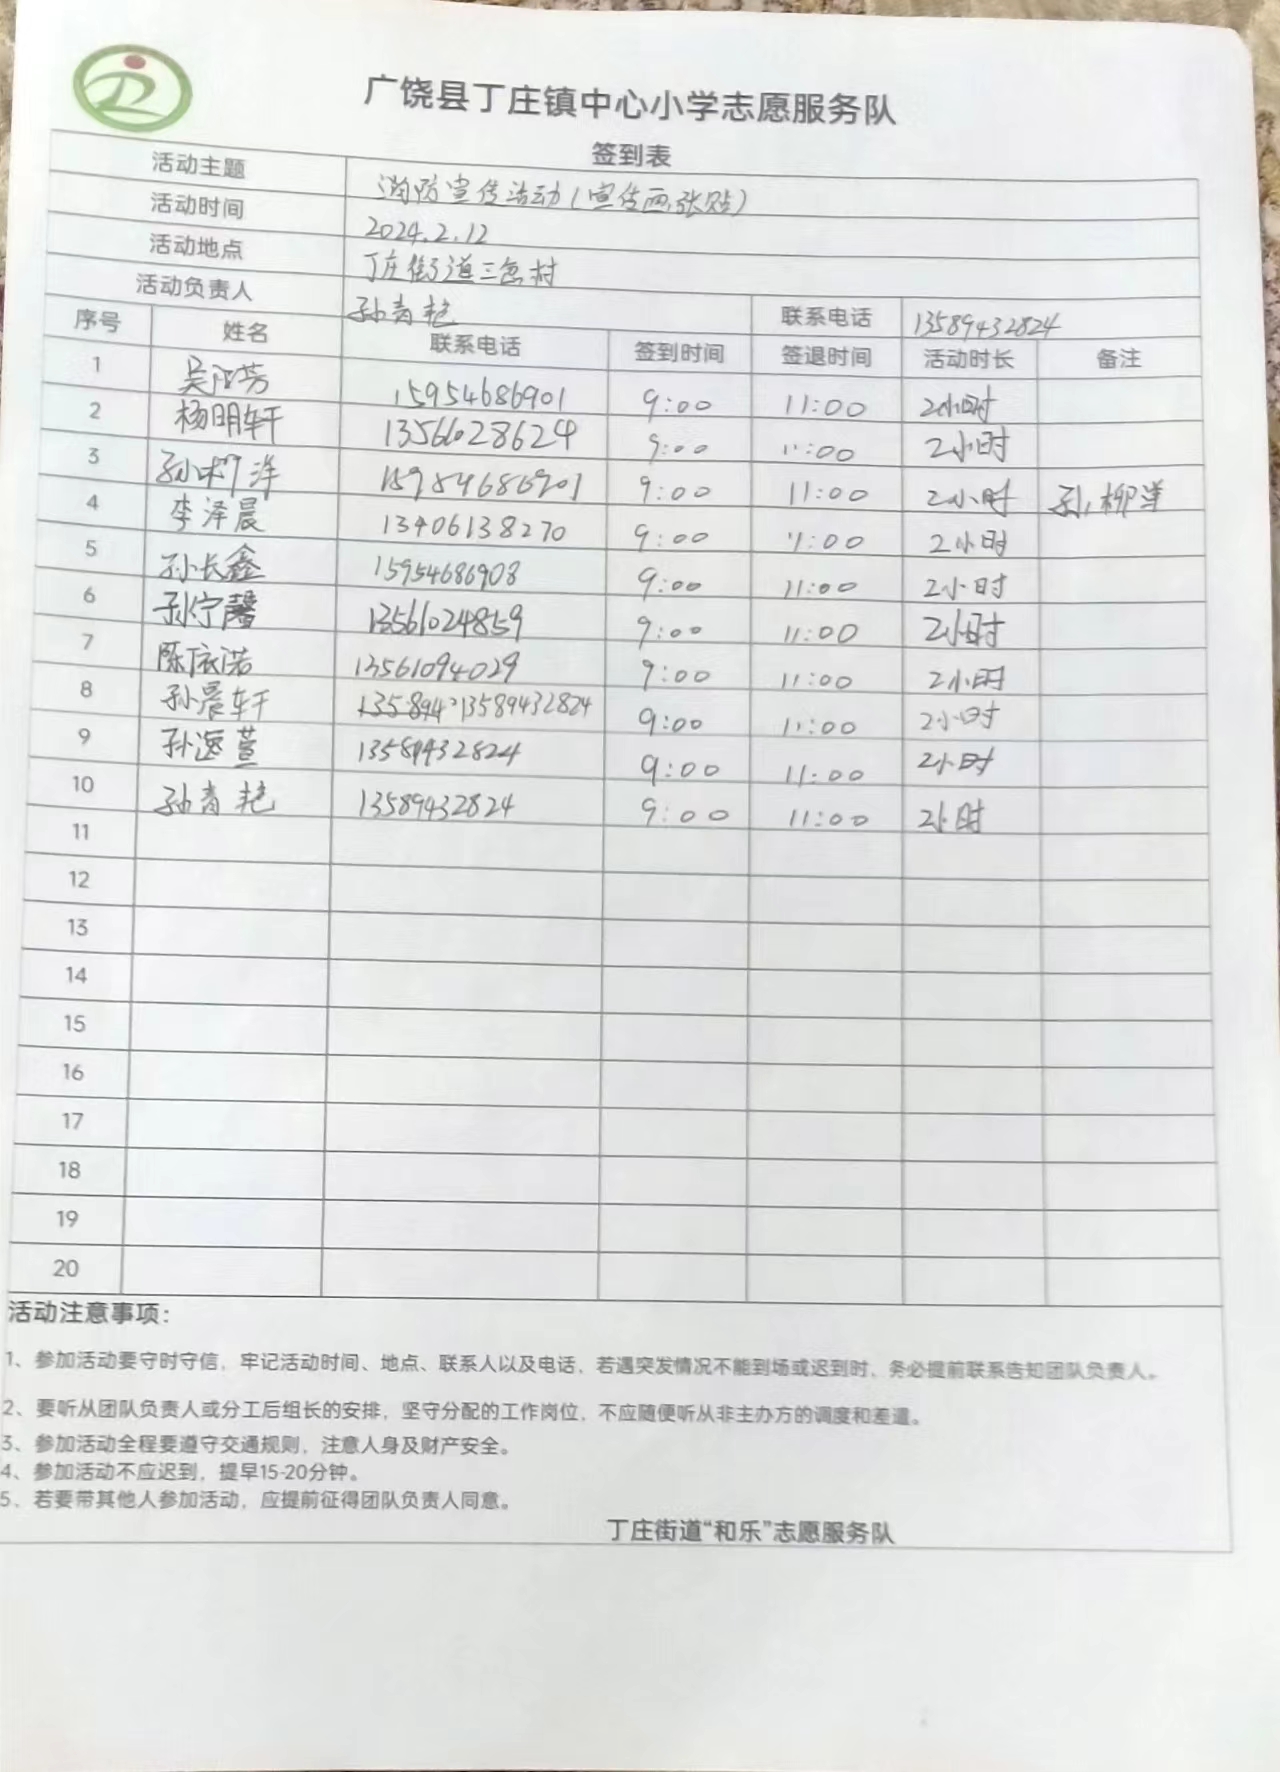 广饶县丁庄镇中心小学志愿服务队
签到表
活动主题 消防宣传活动(宣传画张贴)
活动时间 2024.2.12
活动地点 丁庄街道三岔村
活动负责人 孙青艳 联系电话 13589432824
序号 姓名 联系电话 签到时间 签退时间 活动时长 备注
1 吴江芳 15954686901 9:00 11:00 2小时
2 杨明轩 13561028624 9:00 11:00 2小时
3 孙柳洋 15954686901 9:00 11:00 2小时 孙柳洋
4 李泽晨 13406138270 9:00 11:00 2小时
5 孙长鑫 15954686908 9:00 11:00 2小时
6 孙宁馨 13561024859 9:00 11:00 2小时
7 陈依诺 13561094029 9:00 11:00 2小时
8 孙晨轩 13589432824 9:00 11:00 2小时
9 孙逸萱 13589432824 9:00 11:00 2小时
10 孙青艳 13589432824 9:00 11:00 2小时
11
12
13
14
15
16
17
18
19
20
活动注意事项:
1、参加活动要守时守信，牢记活动时间、地点、联系人以及电话，若遇突发情况不能到场或迟到时，务必提前联系告知团队负责人。
2、要听从团队负责人或分工后组长的安排，坚守分配的工作岗位，不应随便听从非主办方的调度和差遣。
3、参加活动全程要遵守交通规则，注意人身及财产安全。
4、参加活动不应迟到，提早15-20分钟。
5、若要带其他人参加活动，应提前征得团队负责人同意。
丁庄街道“和乐”志愿服务队